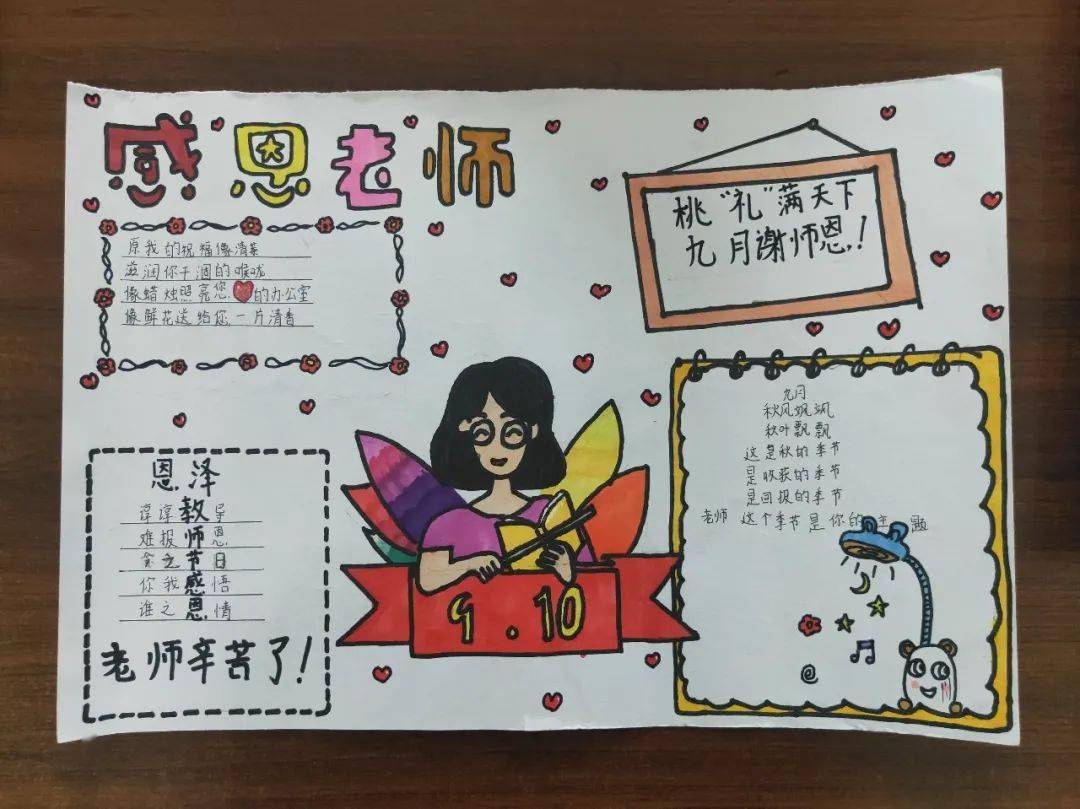 感恩老师
原我的祝福像清茶
滋润你干涸的喉咙
像蜡烛照亮您的办公室
像鲜花送给您一片清香
桃“礼”满天下
九月谢师恩!
恩泽
谆谆教导
难报师恩
节日
你我感悟
谁之恩情
老师辛苦了!
九月
秋风飒飒
秋叶飘飘
这是秋的季节
是收获的季节
是回报的季节
老师 这个季节是你的主题
9.10